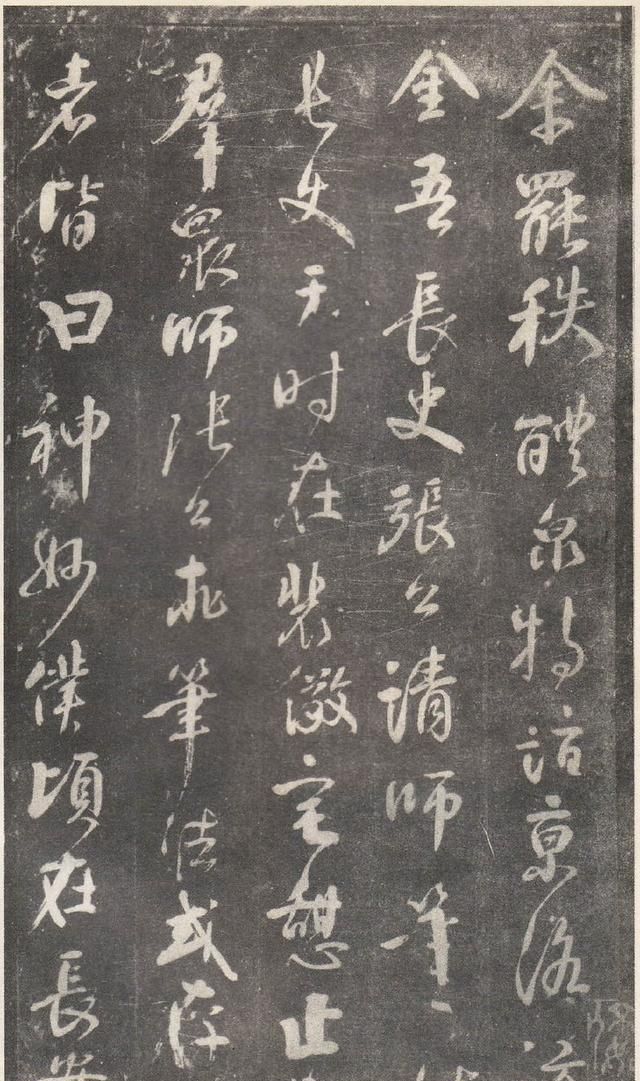 余罷秩醴泉特詣京洛
金吾長史張公請師筆
長史于时在裴儆宅憩止
羣衆師張公求筆法或存
者皆曰神妙僕頃在長安